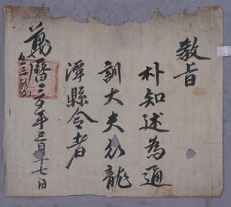 教旨
朴知述為通
訓大夫行龍
潭縣令者
萬曆三十年三月十七日